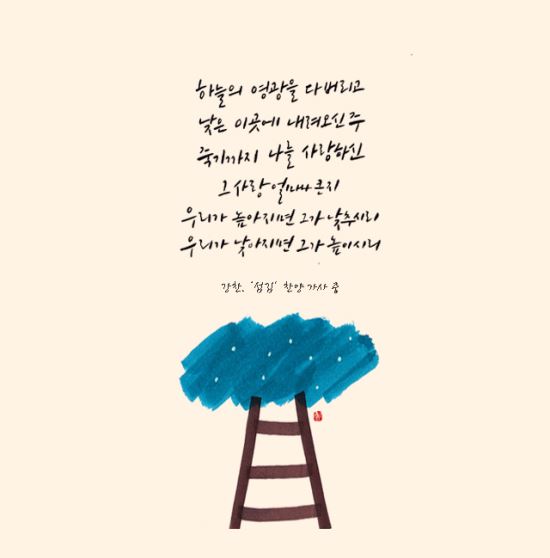 하늘의 영광을 다 버리고
낮은 이곳에 내려오신 주
죽기까지 나를 사랑하신
그 사랑 얼마나 큰지
우리가 높아지면 그가 낮추시리
우리가 낮아지면 그가 높이시리
강찬, '섬김' 찬양 가사 중